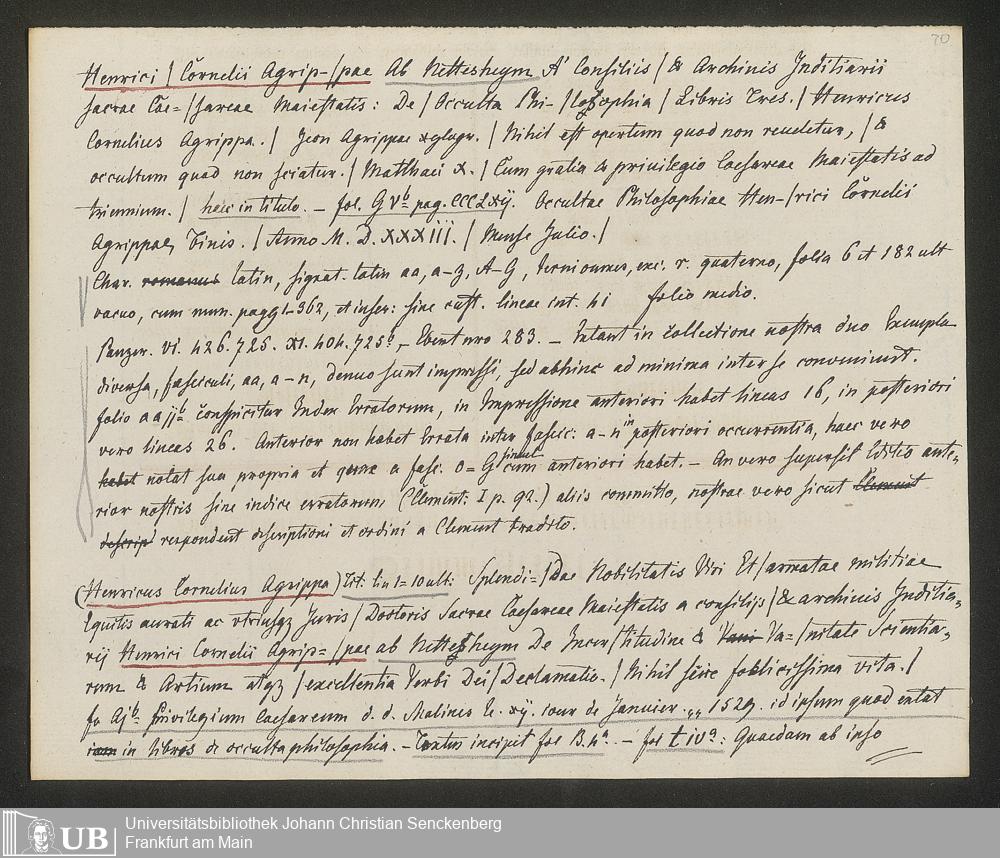 70
Henrici / Cornelii Agrip-/pae Ab Nettesheym A' Consiliis / & Archivis Inditiarii
sacrae Cae=/sareae Maiestatis: De / Occulta Phi-/losophia / Libris Tres. / Henricus
Cornelius Agrippa. / Icon Agrippae xylogr. / Nihil est opertum quod non reueletur, / &
occultum quod non sciatur. / Matthaei X. / Cum gratia & privilegio Caesareae Maiestatis ad
triennium. / haec in titulo. – fol. G Vb pag. CCCLxij. Occultae Philosophiae Hen-/rici Cornelii
Agrippae, Finis. / Anno M. D. XXXIII. / Mense Julio. /
Char. romanus latin, signat. latin aa, a-z, A-G, terniones, exc. r. quaterno, folia 6 et 182 ult
vacuo, cum num. pagg 1-362, et inscr: sine cust. lineae cnt. 41 folio medio.
Panzer. VI. 426. 725. XI. 404. 725b, – Ebert nro 283. – Extant in collectione nostra duo Exempla
diversa, fasciculi, aa, a-n, denuo sunt impressi, sed abhinc ad minima inter se conveniunt.
folio aa ijb conspicitur Index Erratorum, in Impressione anteriori habet lineas 16, in posteriori
vero lineas 26. Anterior non habet Errata inter fascic: a-n in posteriori occurrentia, haec vero
habet notat sua propria et quae a fasc. o=G simul cum anteriori habet. – An vero supersit Editio ante=
rior nostris sine indice erratorum (Clement: I p. 92.) aliis committo, nostrae vero sicut Clement
descrip respondent descriptioni et ordini a Clement tradito.
(Henricus Cornelius Agrippa) Tit: lin 1=10 ult: Splendi=/Dae Nobilitatis Viri Et / armatae militiae
Equitis aurati ac vtriusqz Juris / Doctoris Sacrae Caesareae Maiestatis a consilijs / & archivis Inditia=
rij Henrici Cornelii Agrip=/pae ab Nettesheym De Incer/titudine & Vani Va=/nitate Scientia=
rum & Artium atqz / excellentia Verbi Dei / Declamatio. / Nihil scire foelicissima vita. /
fo Ajb. Privilegium Caesareum d. d. Malines le. xij. iour de Janvier. „„ 1529. id ipsum quod extat
iam in libros de occulta philosophia. – Textus incipit fol B.4a. – fol t iva: Quaedam ab ipso
UB
Universitätsbibliothek Johann Christian Senckenberg
Frankfurt am Main